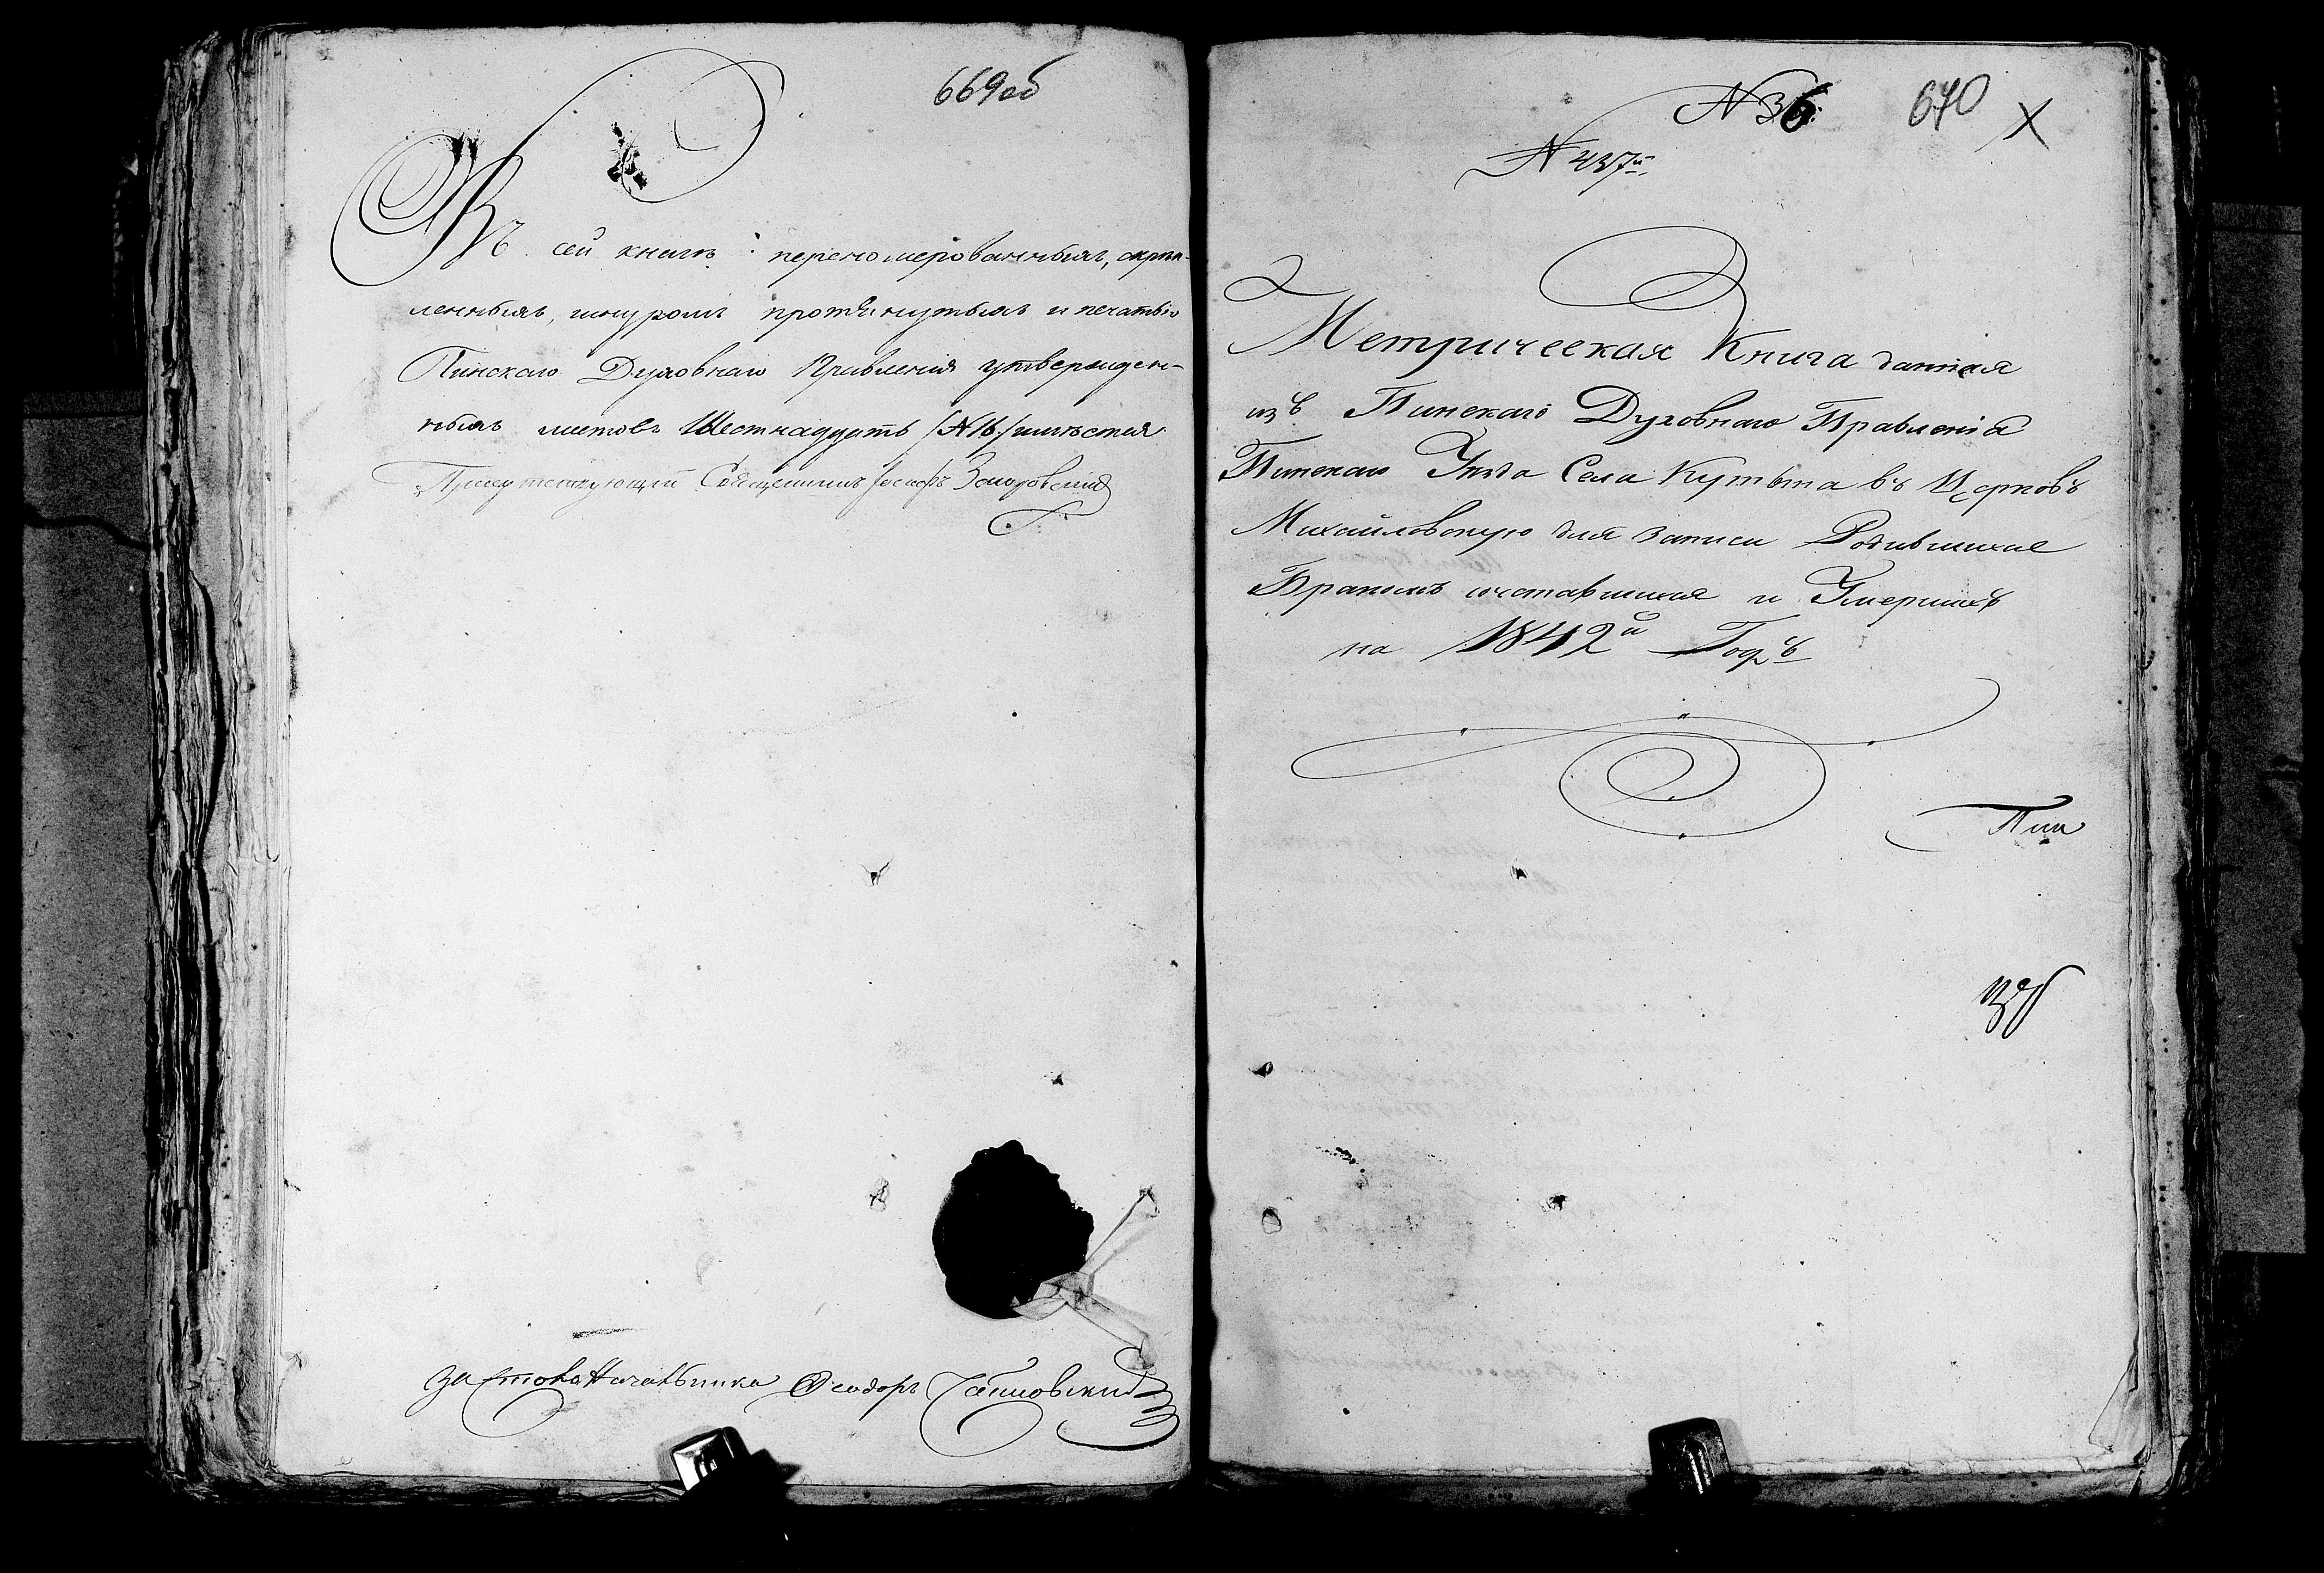 669об
Въ сей книгѣ перономерованныхъ, скрѣп-
ленныхъ, шнуромъ протянутыхъ и печатью
Пинскаго Духовнаго Правленія утвержден-
ныхъ листовъ Шестнадцать /№16/ имѣется.
Присутствующій Священникъ Іосифъ
за столоначальника Ѳеодоръ
№36 670 X
№437й
Метрическая Книга данная
изъ Пинскаго Духовнаго Правленія
Пинскаго Уѣзда Села Кутына въ Церковь
Михайловскую для записи Родившихся
Бракомъ сочетавшихся и Умершихъ
на 1842й Годъ
Пин